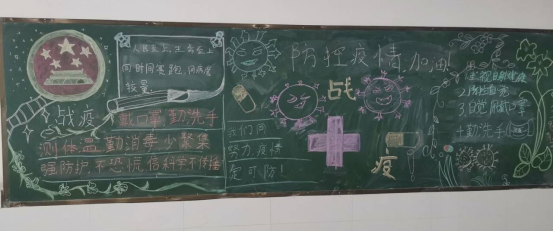 人民至上,生命至上
同时间赛跑,同病魔
较量
战疫
戴口罩 勤洗手
测体温 勤消毒 少聚集
强防护,不恐慌,信科学不传播
防控疫情加油!
战
疫
我们同
努力,疫情
定可防!
2.
3.自觉 口罩
4.勤洗手